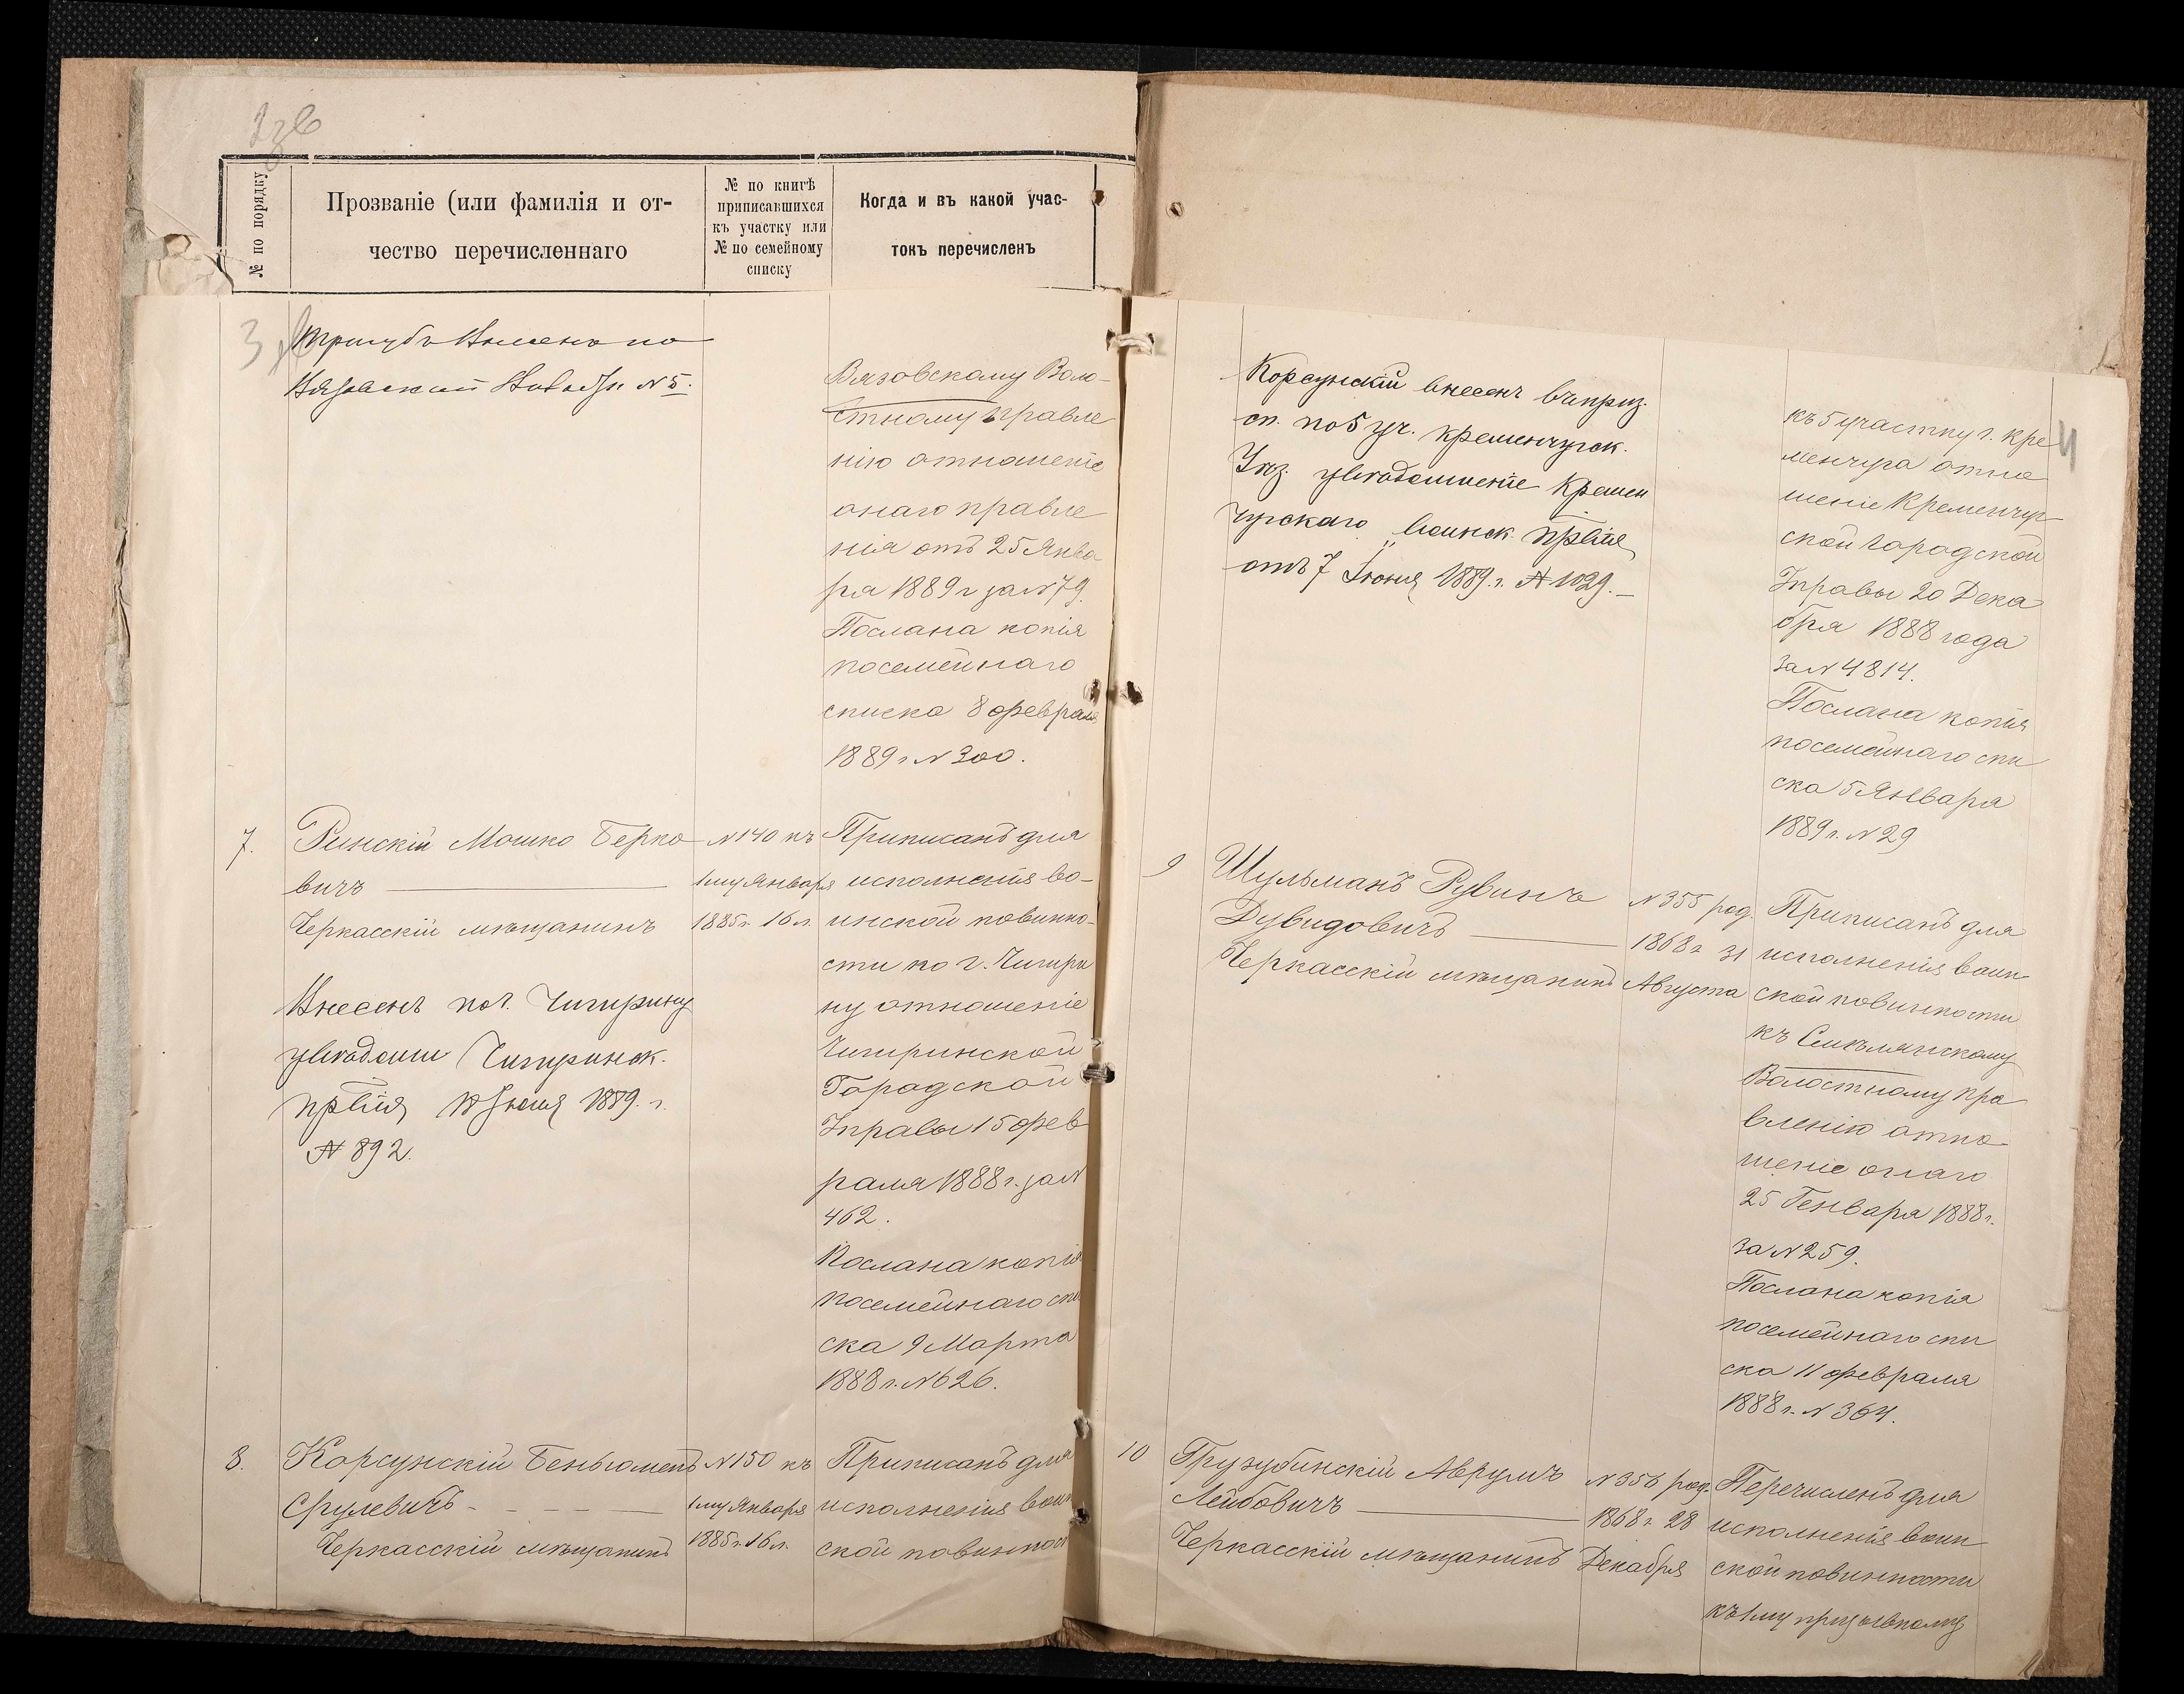 № по порядку
Прозваніе (или фамилія и от-
чество перечисленнаго
№ по книгѣ
приписавшихся
къ участку или
№ по семейному
списку
Когда и въ какой учас-
токъ перечисленъ
3
Внесенъ по
№ 5.
Вязовскому Воло-
стному правле
нію отношеніе
онаго правле
нія отъ 25 Янва
ря 1889 г за № 79.
Послана копія
посемейнаго
списка 8 февраля
1889 г № 300.
7.
Ринскій Мошко Берко
вичъ
Черкасскій мѣщанинъ
Внесенъ по г. Чигирину
увѣдомл Чигиринск.
прсвія 18 Іюня 1889. г.
№ 892.
№ 140 къ
1му Января
1885 г. 16 л.
Приписанъ для
исполненія во-
инской повинно-
сти по г. Чигири
ну отношеніе
Чигиринской
Городской
Управы 15 фев
раля 1888 г. за №
462.
Послана копія
посемейнаго спи
ска 9 Марта
1888 г. № 626.
8.
Корсунскій Беньюменъ
Срулевичъ
Черкасскій мѣщанинъ
№ 150 къ
1му Января
1885 г. 16 л.
Приписанъ для
исполненія воин
ской повинност
Корсунскій внесенъ въ приз.
сп. по 5 уч. Кременчугск.
Уѣз. увѣдомленіе Кремен
чугскаго воинск. прсвія
отъ 7 Іюня 1889. г. № 1029.—
4
къ 5 участку г. Кре
менчуга отно
шеніе Кременчуг
ской Городской
Управы 20 Дека
бря 1888 года
за № 4814.
Послана копія
посемейнаго спи
ска 5 Января
1889 г. № 29
9
Шульманъ Рувинъ
Дувидовичъ
Черкасскій мѣщанинъ
№ 355 род.
1868 г. 31
Августа
Приписанъ для
исполненія воин
ской повинности
къ Смѣлянскому
Волостному пра
вленію отно-
шеніе онаго
25 Генваря 1888 г.
за № 259.
Послана копія
посемейнаго спи
ска 11 февраля
1888 г. № 364.
10
Грузубинскій Аврумъ
Лейбовичъ
Черкасскій мѣщанинъ
№ 356 род.
1868 г. 28
Декабря
Перечисленъ для
исполненія воин
ской повинности
къ 1му призывному